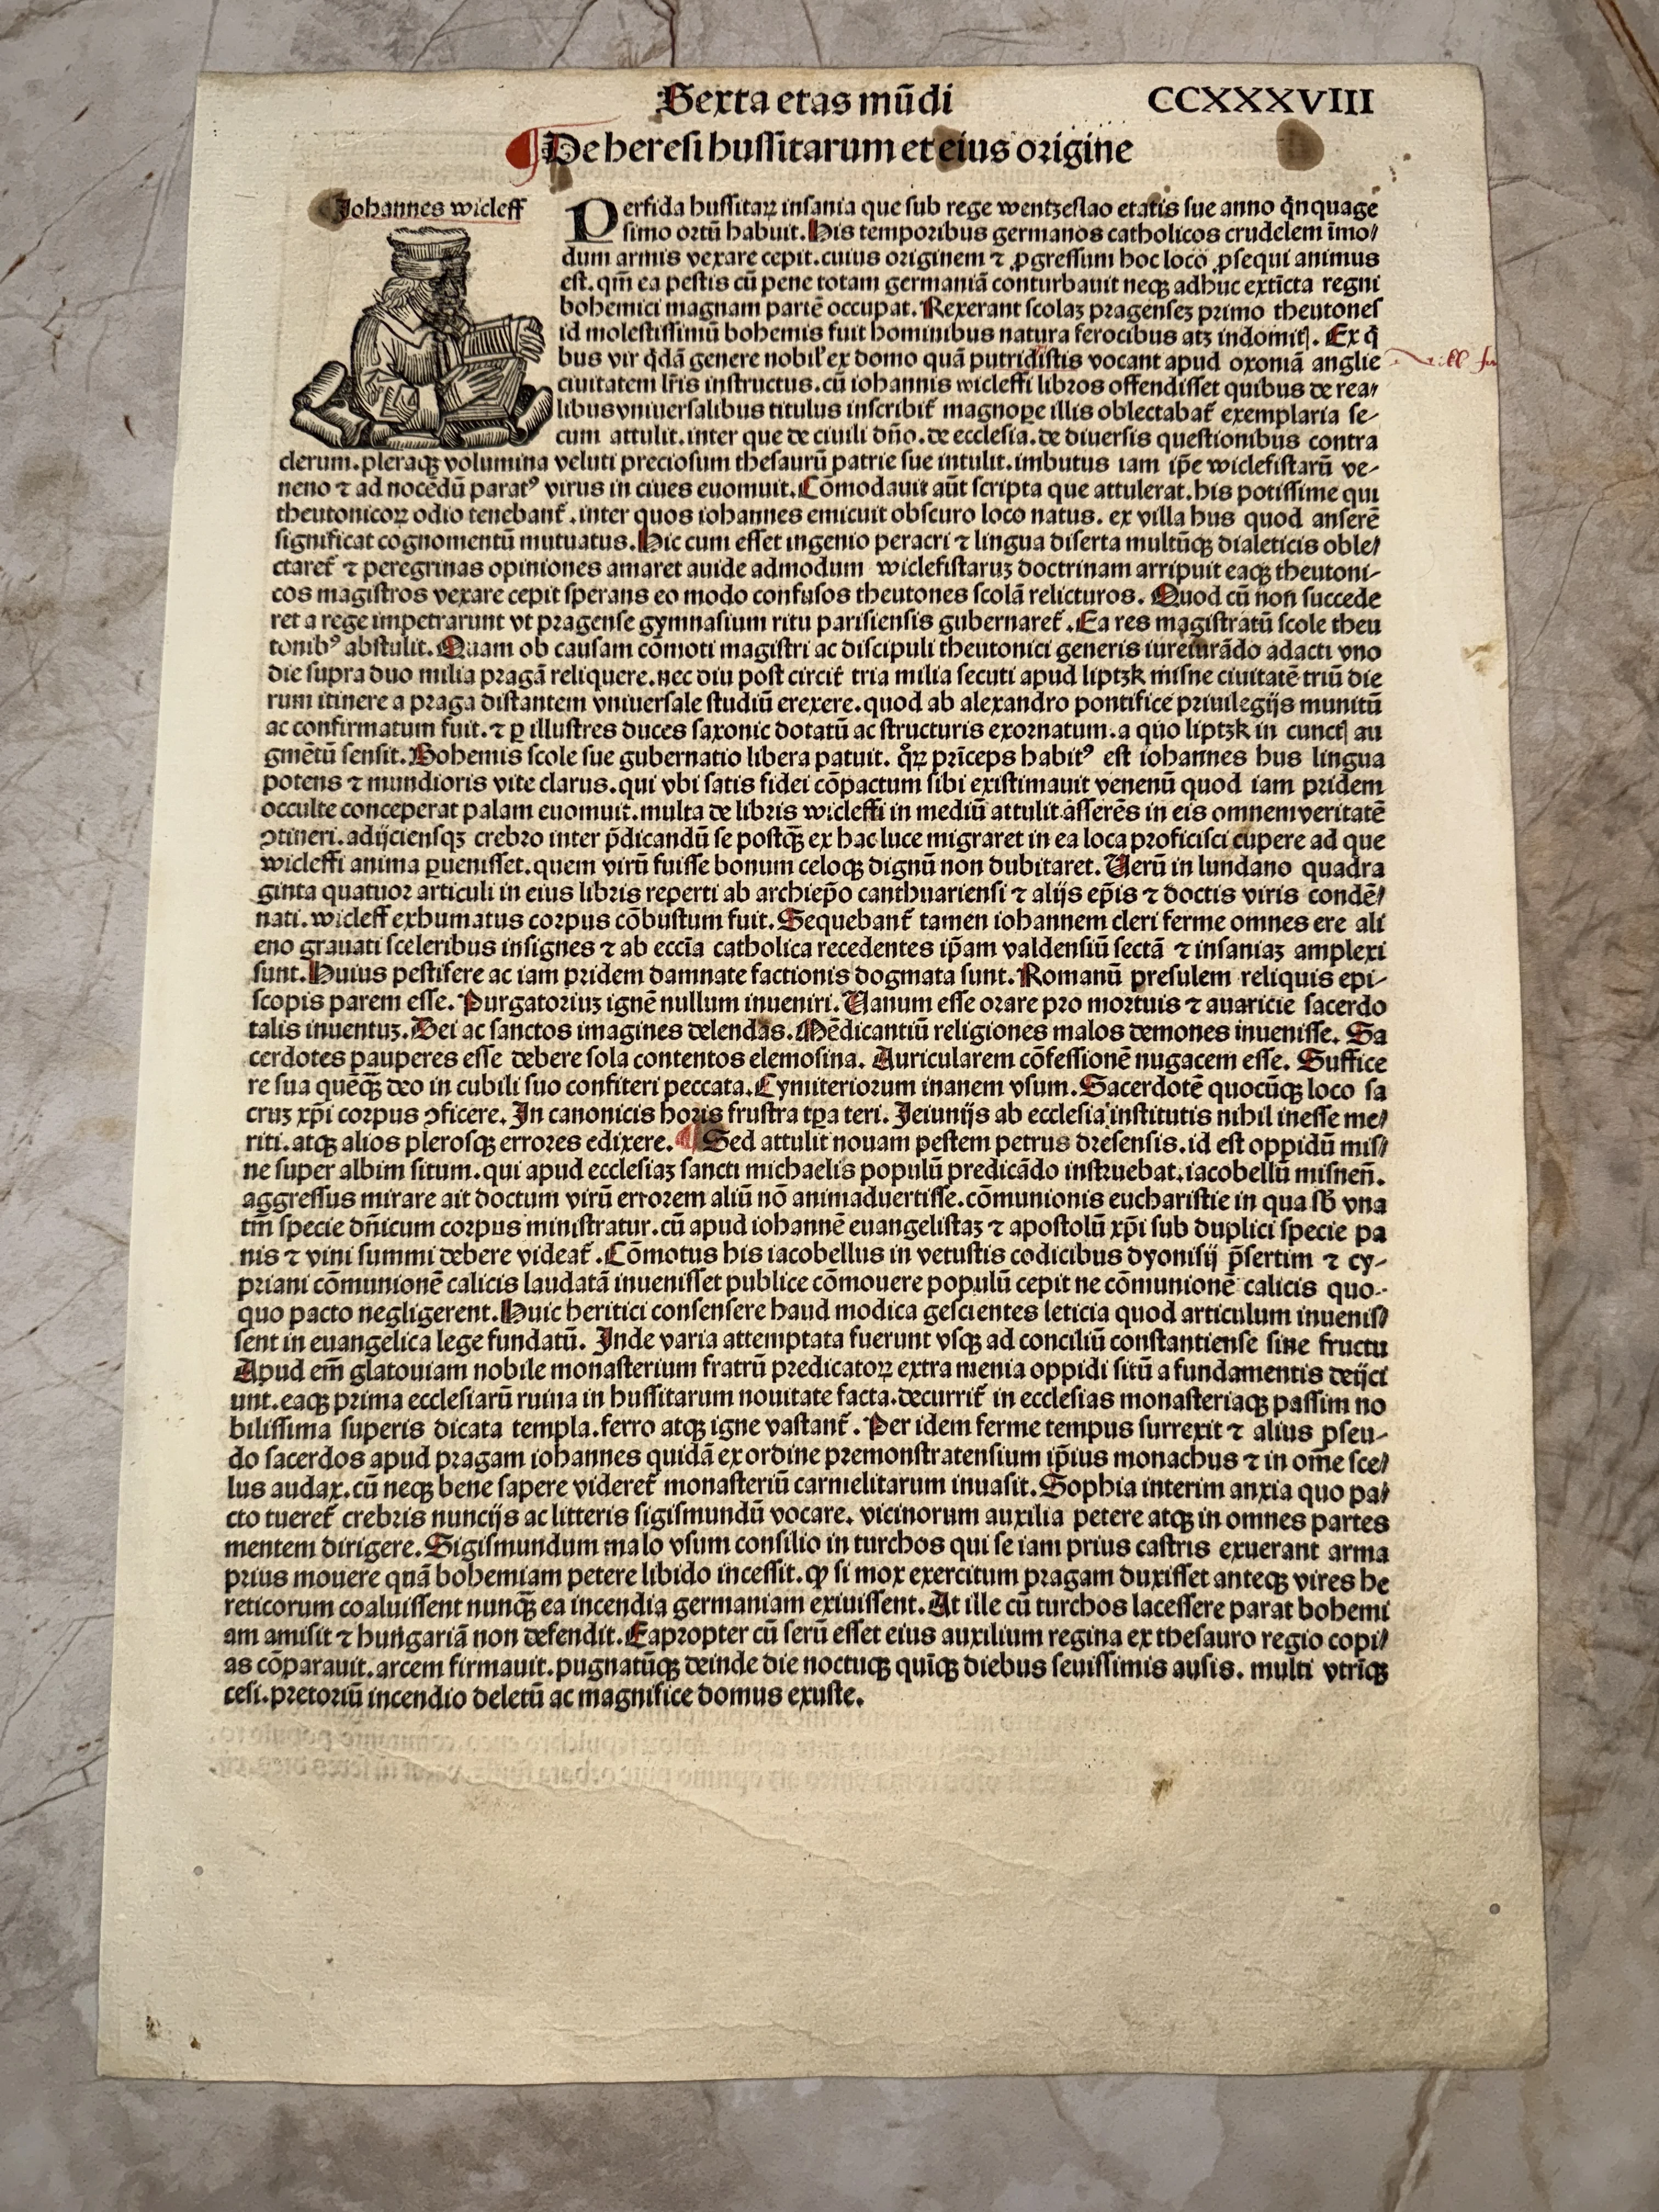 Sexta etas mũdi CCXXXVIII
De heresi hussitarum et eius origine
Johannes wicleff
Perfida hussitaꝝ insania que sub rege wentzeslao etatis sue anno q̃nquage
simo ortũ habuit. His temporibus germanos catholicos crudelem ĩmo/
dum armis vexare cepit. cuius originem ⁊ ꝓgressum hoc loco ꝓsequi animus
est. qm̃ ea pestis cũ pene totam germaniã conturbauit neqꝫ adhuc extĩcta regni
bohemici magnam partẽ occupat. Rexerant scolaꝫ pragenseꝫ primo theutones
id molestissimũ bohemis fuit hominibus natura ferocibus atꝫ indomitꝭ. Ex q̃
bus vir q̃dã genere nobil' ex domo quã putridistis vocant apud oxoniã anglie
ciuitatem lr̃is instructus. cũ iohannis wicleffi libros offendisset quibus de rea/
libus vniuersalibus titulus inscribit̃ magnoꝑe illis oblectabat̃ exemplaria se-
cum attulit. inter que de ciuili dño. de ecclesia. de diuersis questionibus contra
clerum. pleraqꝫ volumina veluti preciosum thesaurũ patrie sue intulit. imbutus iam ip̃e wiclefistarũ ve-
neno ⁊ ad nocẽdũ paratꝰ virus in ciues euomuit. Cõmodauit aũt scripta que attulerat. his potissime qui
theutonicoꝝ odio tenebant̃. inter quos iohannes emicuit obscuro loco natus. ex villa hus quod anserẽ
significat cognomentũ mutuatus. Hic cum esset ingenio peracri ⁊ lingua diserta multũqꝫ dialeticis oble/
ctaret̃ ⁊ peregrinas opiniones amaret auide admodum wiclefistaruꝫ doctrinam arripuit eaqꝫ theutoni-
cos magistros vexare cepit sperans eo modo confusos theutones scolã relicturos. Quod cũ non succede
ret a rege impetrarunt vt pragense gymnasium ritu parisiensis gubernaret̃. Ea res magistratũ scole theu
tonibꝰ abstulit. Quam ob causam cõmoti magistri ac discipuli theutonici generis iureiurãdo adacti vno
die supra duo milia pragã reliquere. nec diu post circit̃ tria milia secuti apud liptzk misne ciuitatẽ triũ die
rum itinere a praga distantem vniuersale studiũ erexere. quod ab alexandro pontifice priuilegijs munitũ
ac confirmatum fuit. ⁊ ꝑ illustres duces saxonic dotatũ ac structuris exornatum. a quo liptzk in cunctꝭ au
gmẽtũ sensit. Bohemis scole sue gubernatio libera patuit. q̊ꝝ prĩceps habitꝰ est iohannes hus lingua
potens ⁊ mundioris vite clarus. qui vbi satis fidei cõpactum sibi existimauit venenũ quod iam pridem
occulte conceperat palam euomuit. multa de libris wicleffi in mediũ attulit asserẽs in eis omnem veritatẽ
ꝯtineri. adijciensqꝫ crebro inter p̃dicandũ se postqꝫ̃ ex hac luce migraret in ea loca proficisci cupere ad que
wicleffi anima ꝑuenisset. quem virũ fuisse bonum celoqꝫ dignũ non dubitaret. Verũ in lundano quadra
ginta quatuor articuli in eius libris reperti ab archiep̃o canthuariensi ⁊ alijs ep̃is ⁊ doctis viris condẽ/
nati. wicleff exhumatus corpus cõbustum fuit. Sequebant̃ tamen iohannem cleri ferme omnes ere ali
eno grauati sceleribus insignes ⁊ ab eccĩa catholica recedentes ip̃am valdensiũ sectã ⁊ insaniaꝫ amplexi
sunt. Huius pestifere ac iam pridem damnate factionis dogmata sunt. Romanũ presulem reliquis epi-
scopis parem esse. Purgatoriuꝫ ignẽ nullum inueniri. Vanum esse orare pro mortuis ⁊ auaricie sacerdo
talis inuentuꝫ. Dei ac sanctos imagines delendas. Mẽdicantiũ religiones malos demones inuenisse. Sa
cerdotes pauperes esse debere sola contentos elemosina. Auricularem cõfessionẽ nugacem esse. Suffice
re sua quẽqꝫ̃ deo in cubili suo confiteri peccata. Cymiteriorum inanem vsum. Sacerdotẽ quocũqꝫ loco sa
cruꝫ xp̃i corpus ꝯficere. In canonicis horis frustra tꝑa teri. Jeiunijs ab ecclesia institutis nihil inesse me/
riti. atqꝫ alios plerosqꝫ errores edixere. ¶ Sed attulit nouam pestem petrus dresensis. id est oppidũ mis/
ne super albim situm. qui apud ecclesiaꝫ sancti michaelis populũ predicãdo instruebat. iacobellũ misneñ.
aggressus mirare ait doctum virũ errorem aliũ nõ animaduertisse. cõmunionis eucharistie in qua sb̃ vna
tm̃ specie dñicum corpus ministratur. cũ apud iohannẽ euangelistaꝫ ⁊ apostolũ xp̃i sub duplici specie pa
nis ⁊ vini summi debere videat̃. Cõmotus his iacobellus in vetustis codicibus dyonisij p̃sertim ⁊ cy-
priani cõmunionẽ calicis laudatã inuenisset publice cõmouere populũ cepit ne cõmunionẽ calicis quo-
quo pacto negligerent. Huic heritici consensere haud modica gescientes leticia quod articulum inuenis/
sent in euangelica lege fundatũ. Inde varia attemptata fuerunt vsqꝫ ad conciliũ constantiense sine fructu
Apud em̃ glatouiam nobile monasterium fratrũ predicatoꝝ extra menia oppidi sitũ a fundamentis deijci
unt. eaqꝫ prima ecclesiarũ ruina in hussitarum nouitate facta. decurrit̃ in ecclesias monasteriaqꝫ passim no
bilissima superis dicata templa. ferro atqꝫ igne vastant̃. Per idem ferme tempus surrexit ⁊ alius pseu-
do sacerdos apud pragam iohannes quidã ex ordine premonstratensium ip̃ius monachus ⁊ in om̃e sce/
lus audax. cũ neqꝫ bene sapere videret̃ monasteriũ carmelitarum inuasit. Sophia interim anxia quo pa/
cto tueret̃ crebris nuncijs ac litteris sigismundũ vocare. vicinorum auxilia petere atqꝫ in omnes partes
mentem dirigere. Sigismundum malo vsum consilio in turchos qui se iam prius castris exuerant arma
prius mouere quã bohemiam petere libido incessit. ꝙ si mox exercitum pragam duxisset anteqꝫ vires he
reticorum coaluissent nunqꝫ̃ ea incendia germaniam exiuissent. At ille cũ turchos lacessere parat bohemi
am amisit ⁊ hungariã non defendit. Eapropter cũ serũ esset eius auxilium regina ex thesauro regio copi/
as cõparauit. arcem firmauit. pugnatũqꝫ deinde die noctuqꝫ quĩqꝫ diebus seuissimis ausis. multi vtrĩqꝫ
cesi. pretoriũ incendio deletũ ac magnifice domus exuste.